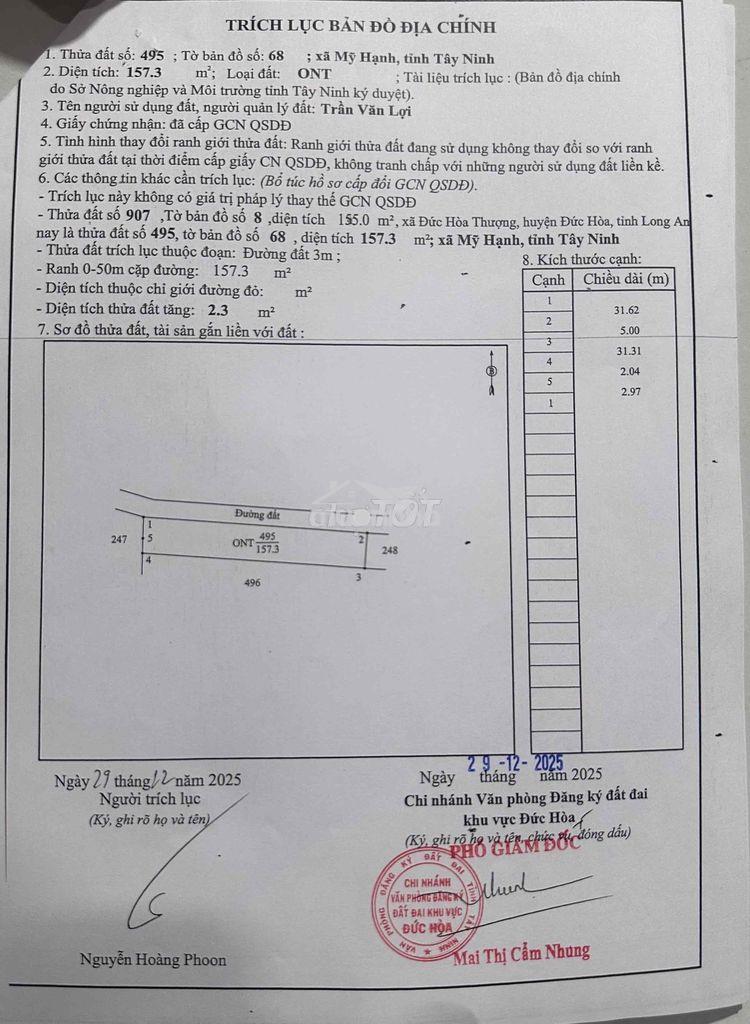 TRÍCH LỤC BẢN ĐỒ ĐỊA CHÍNH
1. Thửa đất số: 495 ; Tờ bản đồ số: 68 ; xã Mỹ Hạnh, tỉnh Tây Ninh
2. Diện tích: 157.3 m²; Loại đất: ONT ; Tài liệu trích lục : (Bản đồ địa chính
do Sở Nông nghiệp và Môi trường tỉnh Tây Ninh ký duyệt).
3. Tên người sử dụng đất, người quản lý đất: Trần Văn Lợi
4. Giấy chứng nhận: đã cấp GCN QSDĐ
5. Tình hình thay đổi ranh giới thửa đất: Ranh giới thửa đất đang sử dụng không thay đổi so với ranh
giới thửa đất tại thời điểm cấp giấy CN QSDĐ, không tranh chấp với những người sử dụng đất liền kề.
6. Các thông tin khác cần trích lục: (Bổ túc hồ sơ cấp đổi GCN QSDĐ).
- Trích lục này không có giá trị pháp lý thay thế GCN QSDĐ
- Thửa đất số 907 ,Tờ bản đồ số 8 ,diện tích 155.0 m², xã Đức Hòa Thượng, huyện Đức Hòa, tỉnh Long An
nay là thửa đất số 495, tờ bản đồ số 68 , diện tích 157.3 m²; xã Mỹ Hạnh, tỉnh Tây Ninh
- Thửa đất trích lục thuộc đoạn: Đường đất 3m ;
- Ranh 0-50m cặp đường: 157.3 m²
- Diện tích thuộc chỉ giới đường đỏ: m²
- Diện tích thửa đất tăng: 2.3 m²
7. Sơ đồ thửa đất, tài sản gắn liền với đất :
8. Kích thước cạnh:
Cạnh Chiều dài (m)
1
31.62
2
5.00
3
31.31
4
2.04
5
2.97
1
B
Đường đất
chợTỐT
247
1
5
4
ONT 495
157.3
2
248
3
496
Ngày 29 tháng 12 năm 2025
Người trích lục
(Ký, ghi rõ họ và tên)
Nguyễn Hoàng Phoon
29-12-2025
Ngày tháng năm 2025
Chi nhánh Văn phòng Đăng ký đất đai
khu vực Đức Hòa
(Ký, ghi rõ họ và tên, chức vụ, đóng dấu)
PHÓ GIÁM ĐỐC
VĂN PHÒNG ĐĂNG KÝ ĐẤT ĐAI TỈNH TÂY NINH
CHI NHÁNH
VĂN PHÒNG ĐĂNG KÝ
ĐẤT ĐAI KHU VỰC
ĐỨC HÒA
Mai Thị Cẩm Nhung